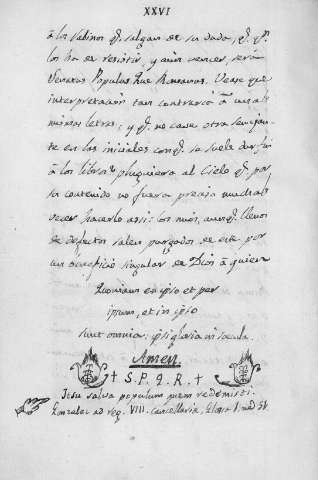 XXVI
à los sabinos q.e salgan de su duda, q.e q.n
los ha de resistir, y aun vencer, será
Senatus Populus Que Romanus. Vease que
interpretación tan contraria à unas
mismas letras; y q.e no cause otra semejan-
te en las iniciales con q.e se suele dar fin
à los libros pluguiera al Cielo q.e por
su contenido no fuera preciso muchas
veces hacerlo assi: los mios, aunq.e llenos
de defectos salen purgados de este por
un beneficio singular de Dios à quien
Quoniam ex ipso et per
ipsum, et in ipso
sunt omnia: ipsi gloria in sæcula.
Amen.
† S. P. Q. R. †
Jesu salva populum quem redemisti.
Gonzalez ad reg. VIII. Cancellaria, Glos.